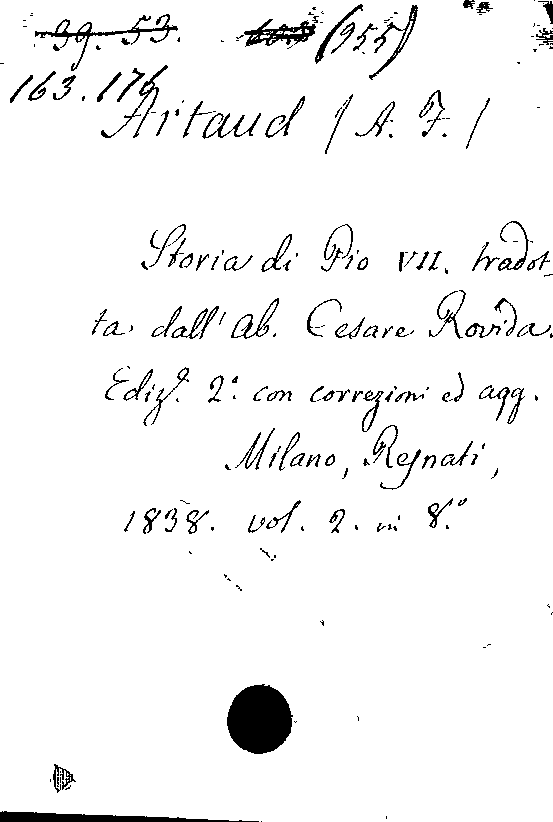 39. 53. (955)
163.176
Artaud (A. F.)
Storia di Pio VII. tradot-
ta dall' Ab. Cesare Rovida.
Ediz.e 2.a con correzioni ed agg.
Milano, Resnati,
1838. vol. 2. in 8.°